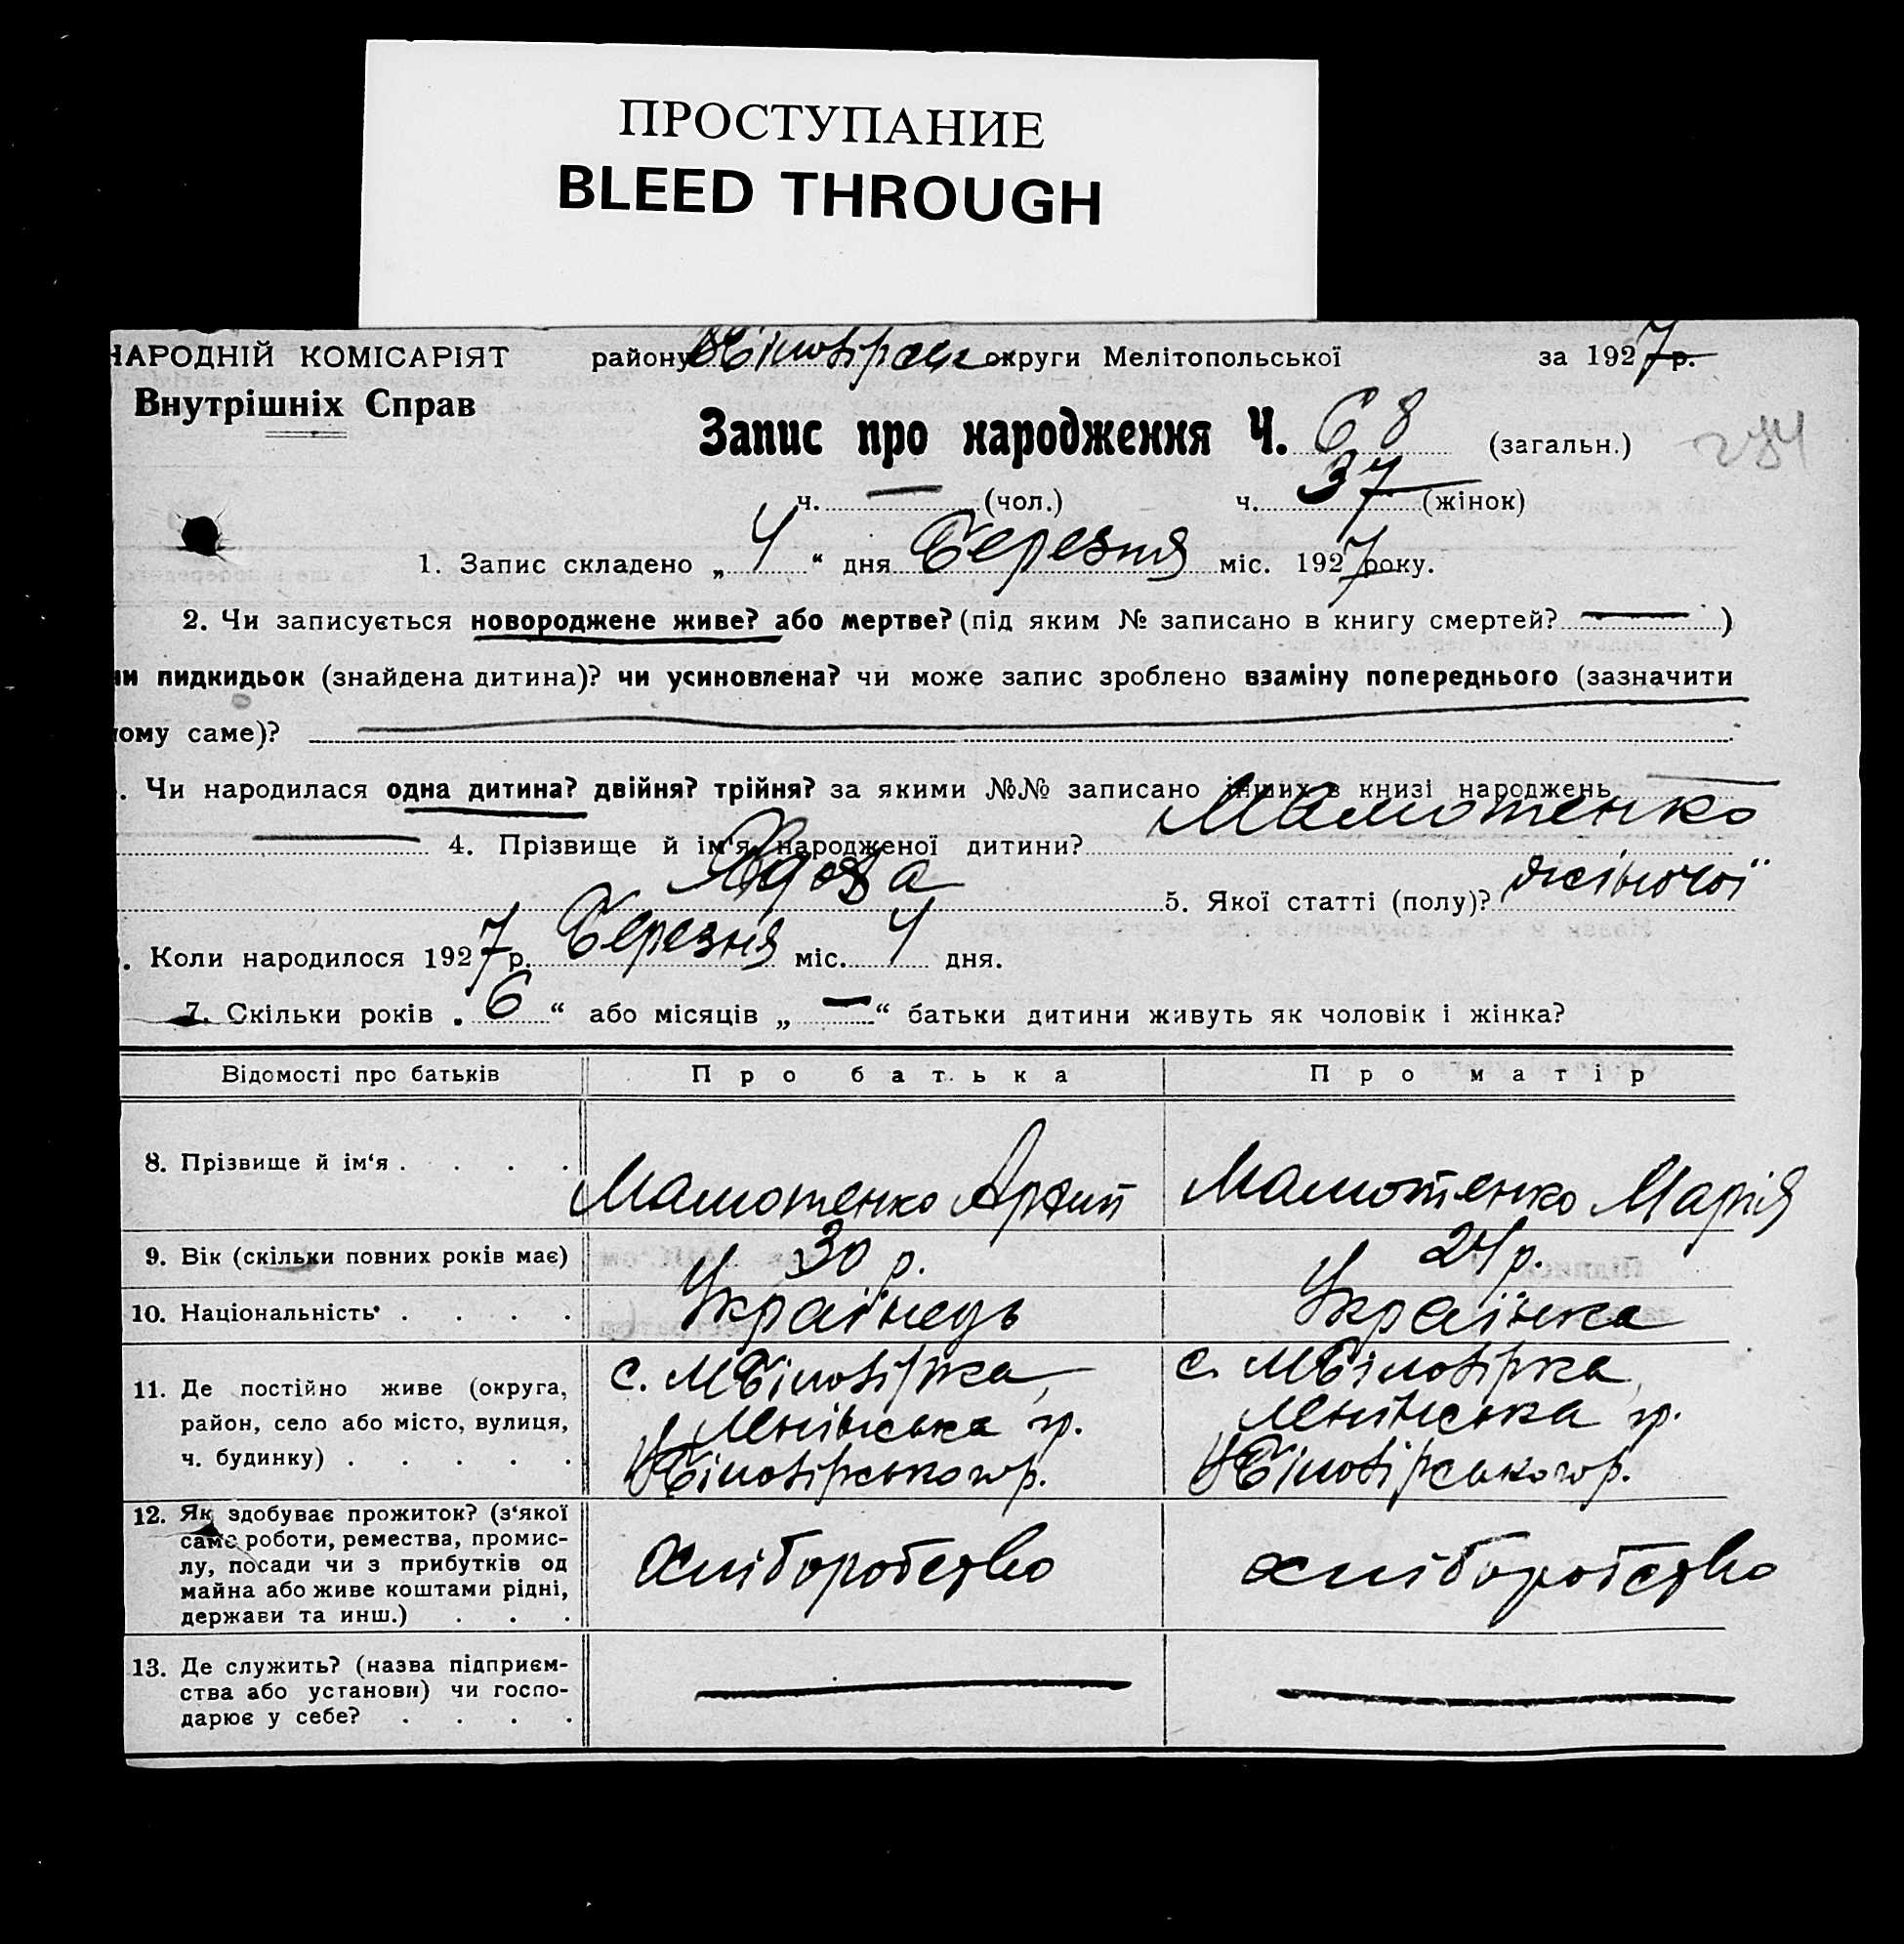 ПРОСТУПАНИЕ
BLEED THROUGH
НАРОДНІЙ КОМІСАРІЯТ району округи Мелітопольської за 1927 р.
Внутрішніх Справ
Запис про народження Ч. 68 (загальн.)
ч. — (чол.) ч. 37 (жінок)
1. Запис складено „ 4 “ дня Березня міс. 1927 року.
2. Чи записується новороджене живе? або мертве? (під яким № записано в книгу смертей? — )
чи пидкидьок (знайдена дитина)? чи усиновлена? чи може запис зроблено взаміну попереднього (зазначити
саме)?
. Чи народилася одна дитина? двійня? трійня? за якими №№ записано інших в книзі народжень —
— 4. Прізвище й ім'я народженої дитини? Мамотенко
5. Якої статті (полу)? жіночої
. Коли народилося 1927 р. Березня міс. 4 дня.
7. Скільки років „ 6 “ або місяців „ — “ батьки дитини живуть як чоловік і жінка?
Відомості про батьків Про батька Про матір
8. Прізвище й ім'я . . . . Мамотенко Архип Мамотенко Марія
9. Вік (скільки повних років має) 30 р. 24 р.
10. Національність . . . . Українець Українка
11. Де постійно живе (округа, район, село або місто, вулиця, ч. будинку) . . . . .
с. МБілозірка, Ленінська
с. МБілозірка, Ленінська
12. Як здобуває прожиток? (з'якої саме роботи, ремества, промислу, посади чи з прибутків од майна або живе коштами рідні, держави та инш.) . . . хліборобство хліборобство
13. Де служить? (назва підприємства або установи) чи господарює у себе? . . . . — —